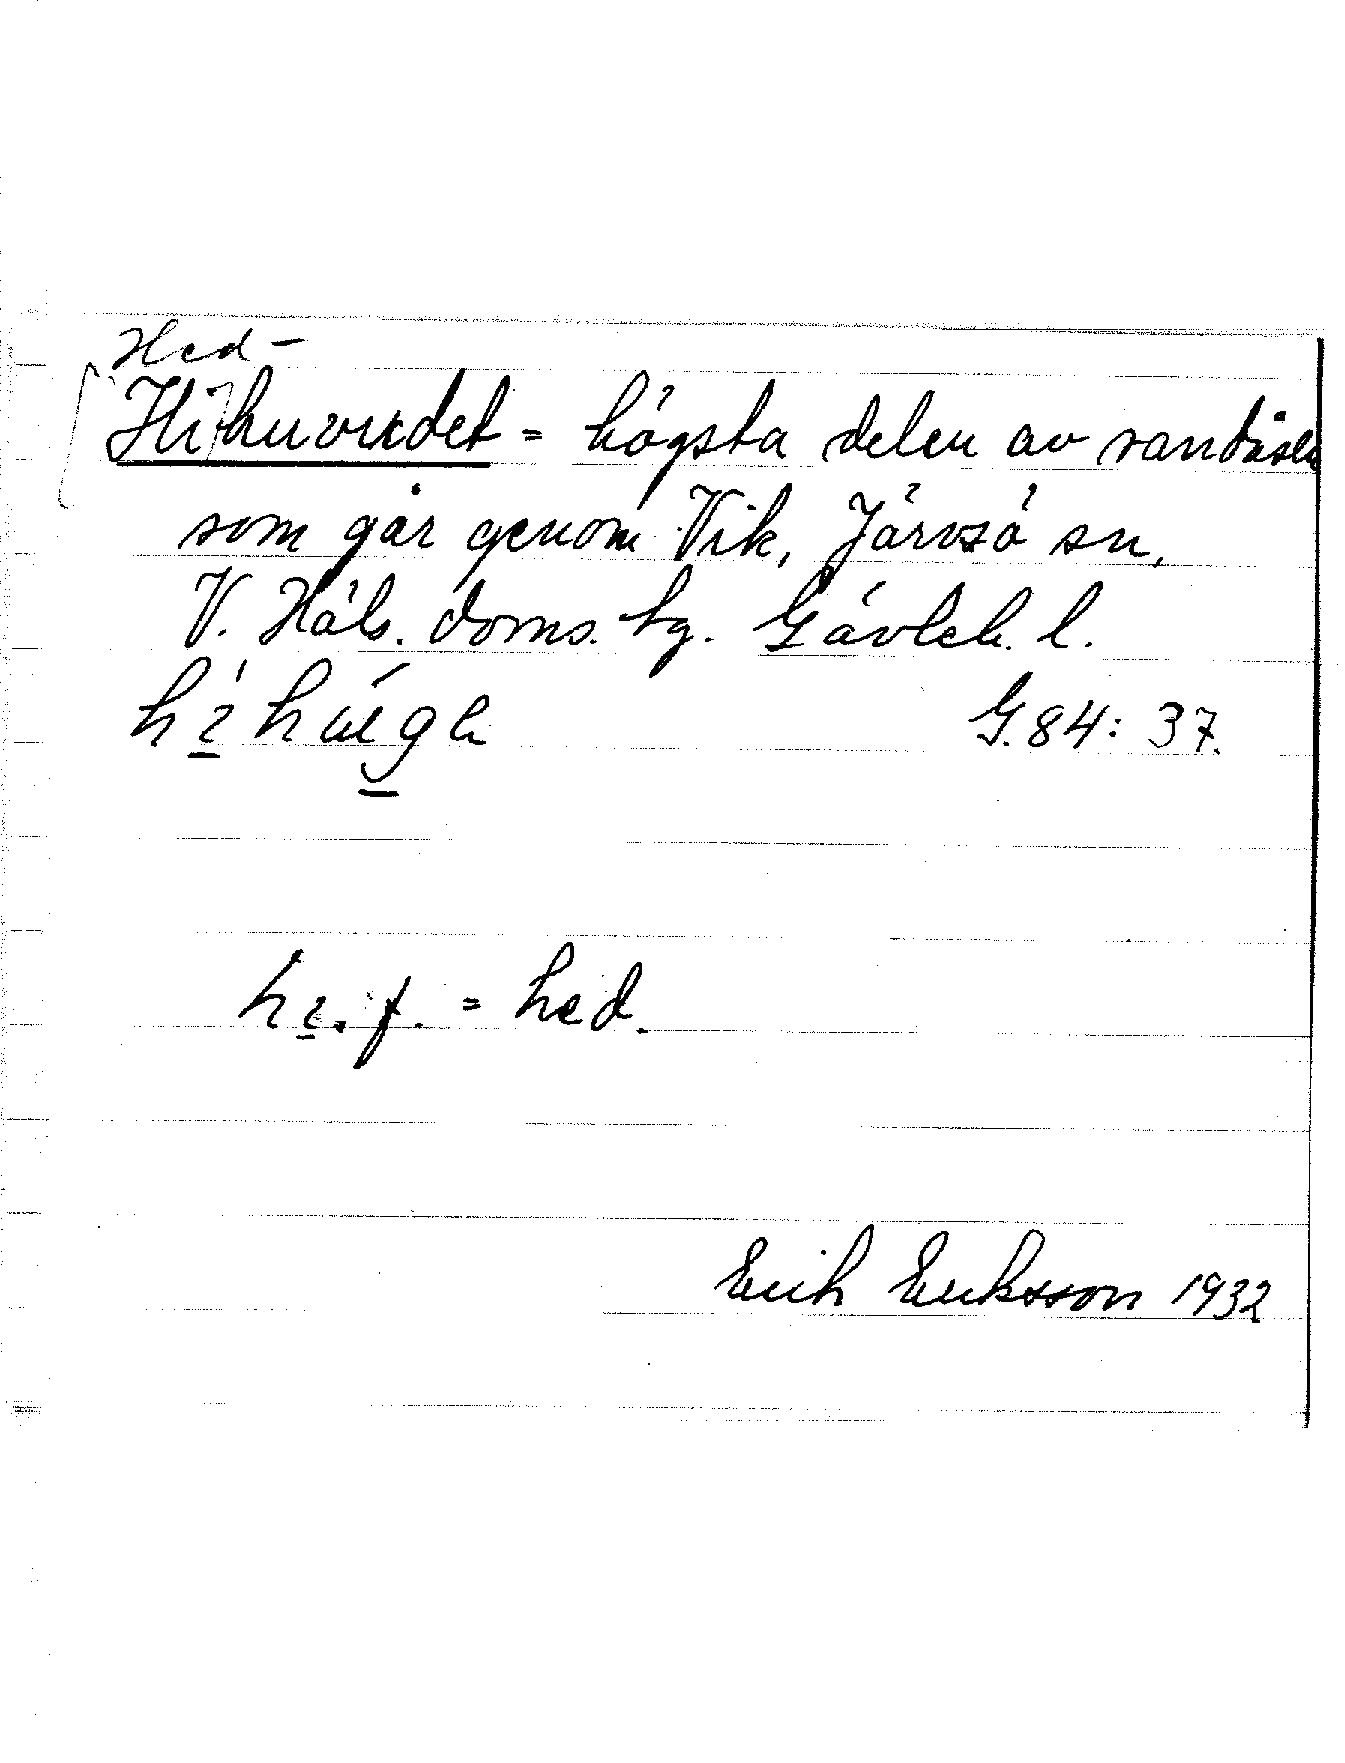 Hed-
Hihuvudet = högsta delen av sandåsen
som går genom Vik, Järvsö sn,
V. Häls. doms. hg. Gävleb. l.
G. 84: 37.
f. = hed.
Erik Eriksson 1932